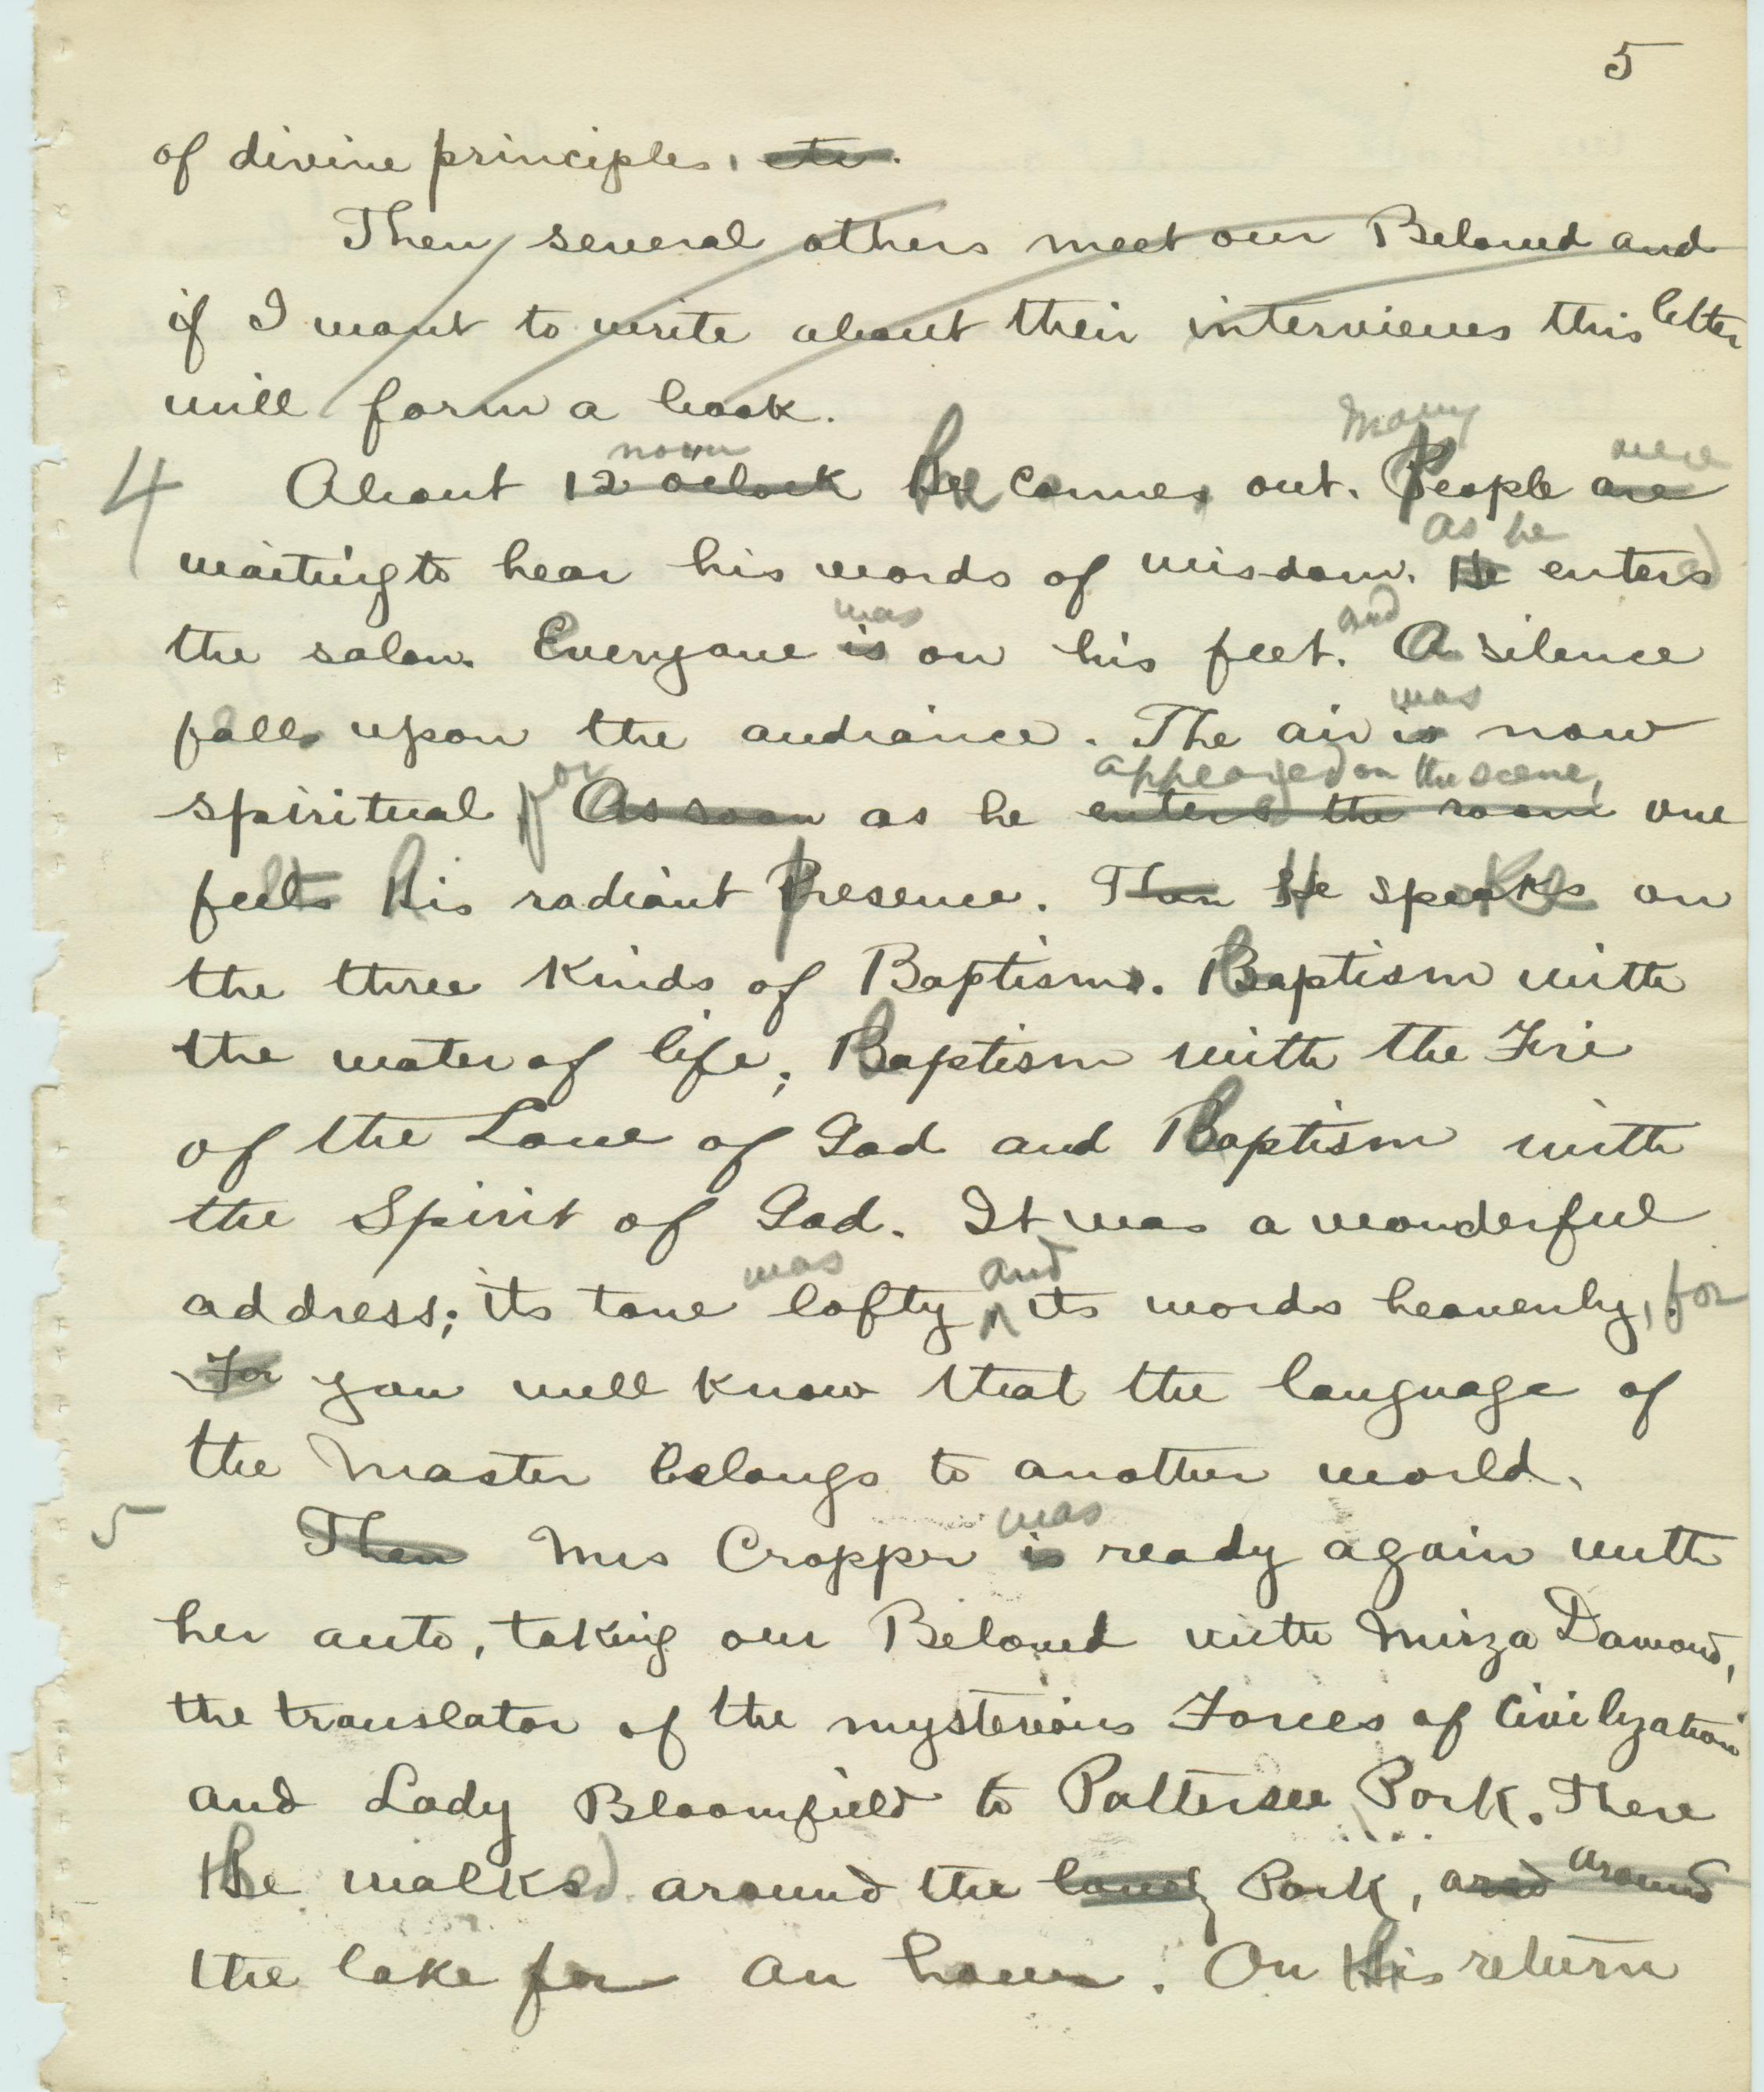 5
of divine principles, etc.
Then several others meet our Beloved and
if I want to write about their interviews this letter
will form a book.
noon Many were
4 About 12 oclock he comes out. People are
as he
waiting to hear his words of wisdom. He entered
was and
the salon. Everyone is on his feet. A silence
was
falls upon the audiance. The air is now
for appeared on the scene,
spiritual As soon as he enters the room one
felt his radiant presence. Then He spoke on
the three kinds of Baptism. baptism with
the water of life; baptism with the Fire
of the Love of God and baptism with
the Spirit of God. It was a wonderful
was and
address; its tone lofty ^ its words heavenly, for
For you well know that the language of
the Master belongs to another world.
was
5 Then Mrs Cropper is ready again with
her auto, taking our Beloved with Mirza Dawoud,
the translator of the mysterious Forces of Civilization
and Lady Bloomfield to Pattersee Park. There
he walked around the lovely Park, and around
the lake for an hour. On his return